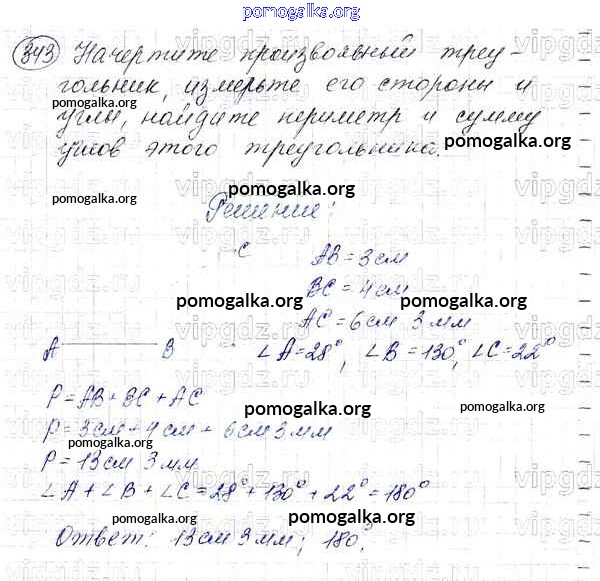 pomogalka.org
343 Начертите произвольный треу-
гольник, измерьте его стороны и
pomogalka.org pomogalka.org
углы, найдите периметр и сумму
углов этого треугольника.
pomogalka.org
pomogalka.org
Решение:
C AB = 3 см
BC = 4 см
pomogalka.org pomogalka.org
AC = 6 см 3 мм
A B ∠A = 28°, ∠B = 130°, ∠C = 22°
P = AB + BC + AC
pomogalka.org pomogalka.org
P = 3 см + 4 см + 6 см 3 мм
pomogalka.org
P = 13 см 3 мм
∠A + ∠B + ∠C = 28° + 130° + 22° = 180°
pomogalka.org pomogalka.org
Ответ: 13 см 3 мм; 180°.
vipgdz.ru